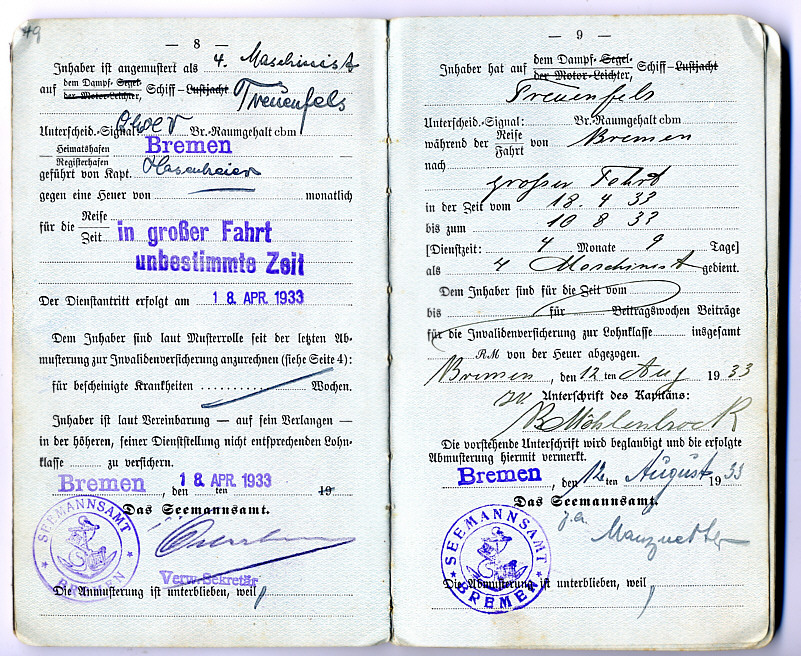 49
— 8 —
Inhaber ist angemustert als 4. Maschinist
auf dem Dampf- Segel- der Motor-Leichter, Schiff – Lustjacht Treuenfels
Unterscheid.-Signal: Br.-Raumgehalt cbm
Heimatshafen
Registerhafen Bremen
geführt von Kapt. Hasenheier
gegen eine Heuer von monatlich
für die Reise Zeit in großer Fahrt
unbestimmte Zeit
Der Dienstantritt erfolgt am 18. APR. 1933
Dem Inhaber sind laut Musterrolle seit der letzten Ab-
musterung zur Invalidenversicherung anzurechnen (siehe Seite 4):
für bescheinigte Krankheiten .......... Wochen.
Inhaber ist laut Vereinbarung — auf sein Verlangen —
in der höheren, seiner Dienststellung nicht entsprechenden Lohn-
klasse ......... zu versichern.
Bremen, den 18. APR. 1933 ten 19
Das Seemannsamt.
SEEMANNSAMT BREMEN
Verw. Sekretär
Die Anmusterung ist unterblieben, weil
— 9 —
Inhaber hat auf dem Dampf- Segel- der Motor-Leichter, Schiff – Lustjacht
Treuenfels
Unterscheid.-Signal: Br.-Raumgehalt cbm
während der Reise Fahrt von Bremen
nach
großer Fahrt
in der Zeit vom 18. 4 33
bis zum 10 8 33
[Dienstzeit: 4 Monate 9 Tage]
als 4 Maschinist gedient.
Dem Inhaber sind für die Zeit vom
bis für Beitragswochen Beiträge
für die Invalidenversicherung zur Lohnklasse insgesamt
RM von der Heuer abgezogen.
Bremen, den 12 ten Aug 1933
Unterschrift des Kapitäns:
B Möhlenbrock
Die vorstehende Unterschrift wird beglaubigt und die erfolgte
Abmusterung hiermit vermerkt.
Bremen, den 12 ten August 1933
Das Seemannsamt.
SEEMANNSAMT BREMEN
Die Abmusterung ist unterblieben, weil